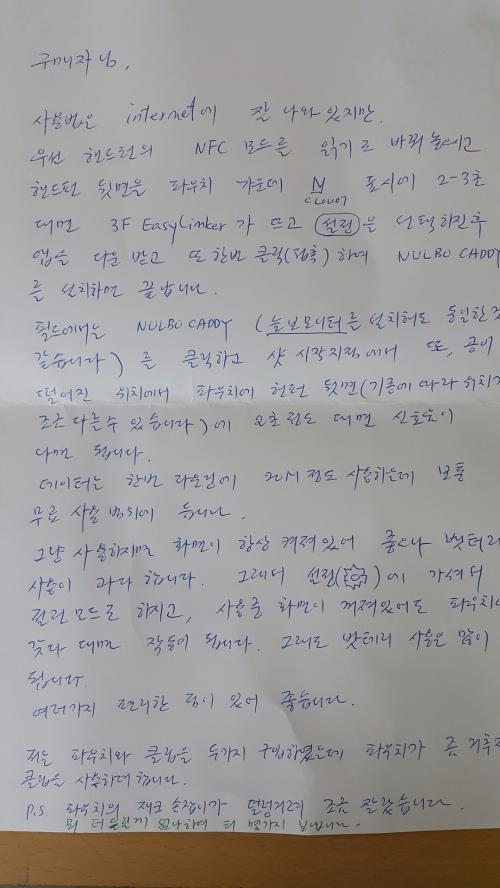 구매자님,
사용법은 internet에 잘 나와 있지만,
우선 핸드폰의 NFC 모드를 읽기로 바꿔 놓으시고
핸드폰 뒷면을 파우치 가운데 N 표시에 2-3초
CLOUD7
대면 3F EasyLinker가 뜨고 설린 을 선택하진후
앱을 다운 받고 또 한번 클릭(접촉)하여 NULBO CADDY
를 설치하면 끝납니다.
필드에서는 NULBO CADDY (늘보모니터를 설치해도 동일한것
같습니다)를 클릭하고 샷 시작지점에서 또, 공이
떨어진 위치에서 파우치에 헌련 뒷면(기종에 따라 위치가
조금 다를수 있습니다)에 2초정도 대면 신호음이
나면 됩니다.
데이터는 한번 라운딩에 20M 정도 사용하는데 보통
무료 사용 범위에 듭니다.
그냥 사용하지면 화면이 항상 켜져있어 좋으나 뱃터리
사용이 과다 합니다. 그래서 설정( )에 가셔서
절전모드로 하시고, 사용중 화면이 꺼져있어도 파우치에
갖다 대면 작동이 됩니다. 그래도 밧테리 사용은 많이
됩니다.
여러가지 편리한 점이 있어 좋습니다.
저는 파우치와 클립을 두가지 구입하였는데 파우치가 좀 거추
클립을 사용하려 합니다.
P.S. 파우치의 재크 손잡이가 덜렁거려 조금 잘랐습니다.
뭐 더 드릴게 있나하여 티 몇가지 보냅니다.